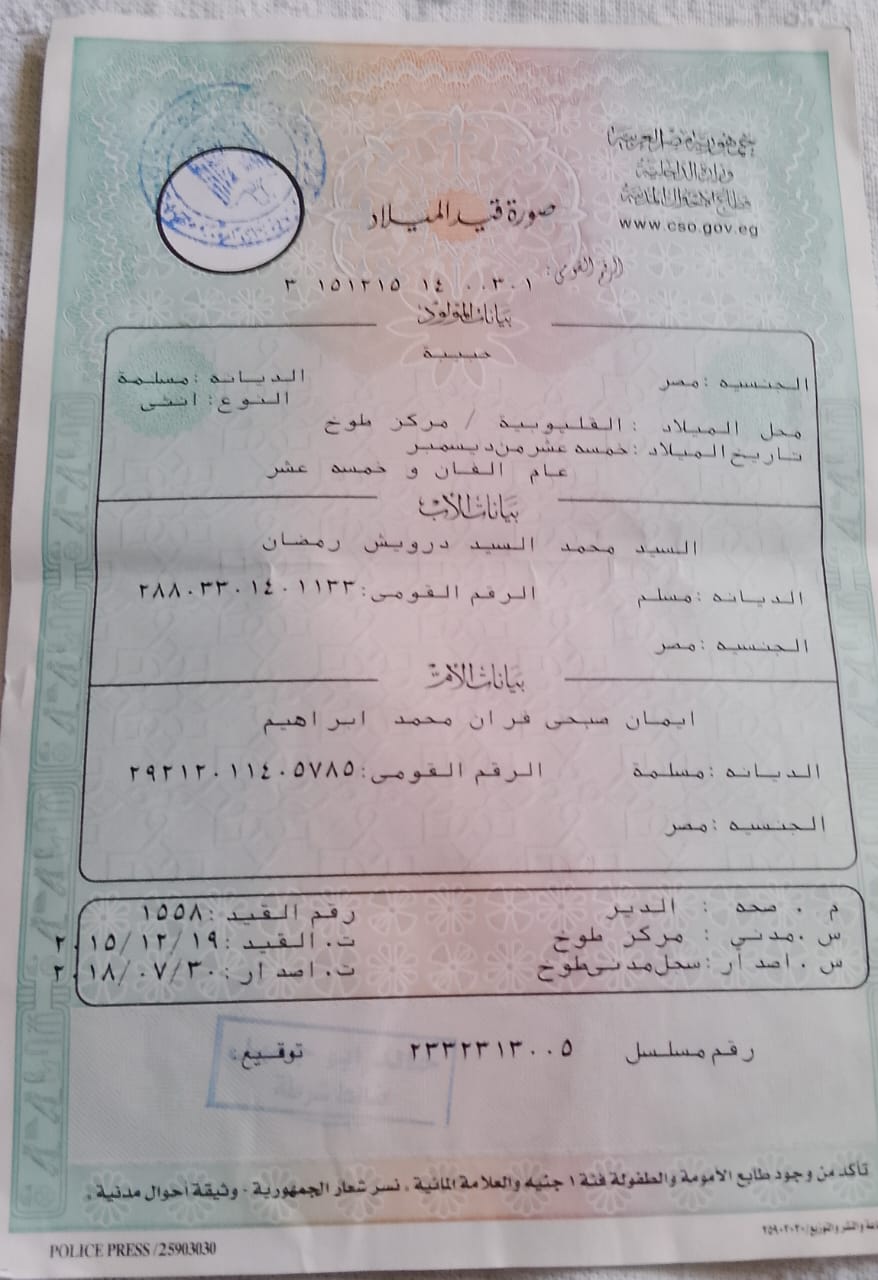 جمهورية مصر العربية
وزارة الداخلية
قطاع الأحوال المدنية
www.cso.gov.eg
صورة قيد الميلاد
الرقم القومى: ٣ ١٥١٢١٥ ١٤ ٠٠٣٠١
بيانات المولود
حبيبة
الجنسيه :مصر الديانه :مسلمة
النوع: انثى
محل الميلاد : القليوبية / مركز طوخ
تاريخ الميلاد :خمسه عشر من ديسمبر
عام الفان و خمسه عشر
بيانات الأب
السيد محمد السيد درويش رمضان
الديانه :مسلم الرقم القومى:٢٨٨٠٣٣٠١٤٠١١٣٣
الجنسيه :مصر
بيانات الأم
ايمان صبحى فران محمد ابراهيم
الديانه :مسلمة الرقم القومى:٢٩٢١٢٠١١٤٠٥٧٨٥
الجنسيه :مصر
م . صحه : الدير رقم القيد :١٥٥٨
س .مدني : مركز طوخ ت. القيد :٢٠١٥/١٢/١٩
س . اصدار :سجل مدنى طوخ ت. اصدار :٢٠١٨/٠٧/٣٠
رقم مسلسل ٢٣٣٢٣١٣٠٠٥ توقيع:
تأكد من وجود طابع الأمومة والطفولة فئة ١ جنيه والعلامة المائية ، نسر شعار الجمهورية - وثيقة أحوال مدنية .
والنشر والتوزيع/٢٥٩٠٣٠٣٠
POLICE PRESS /25903030